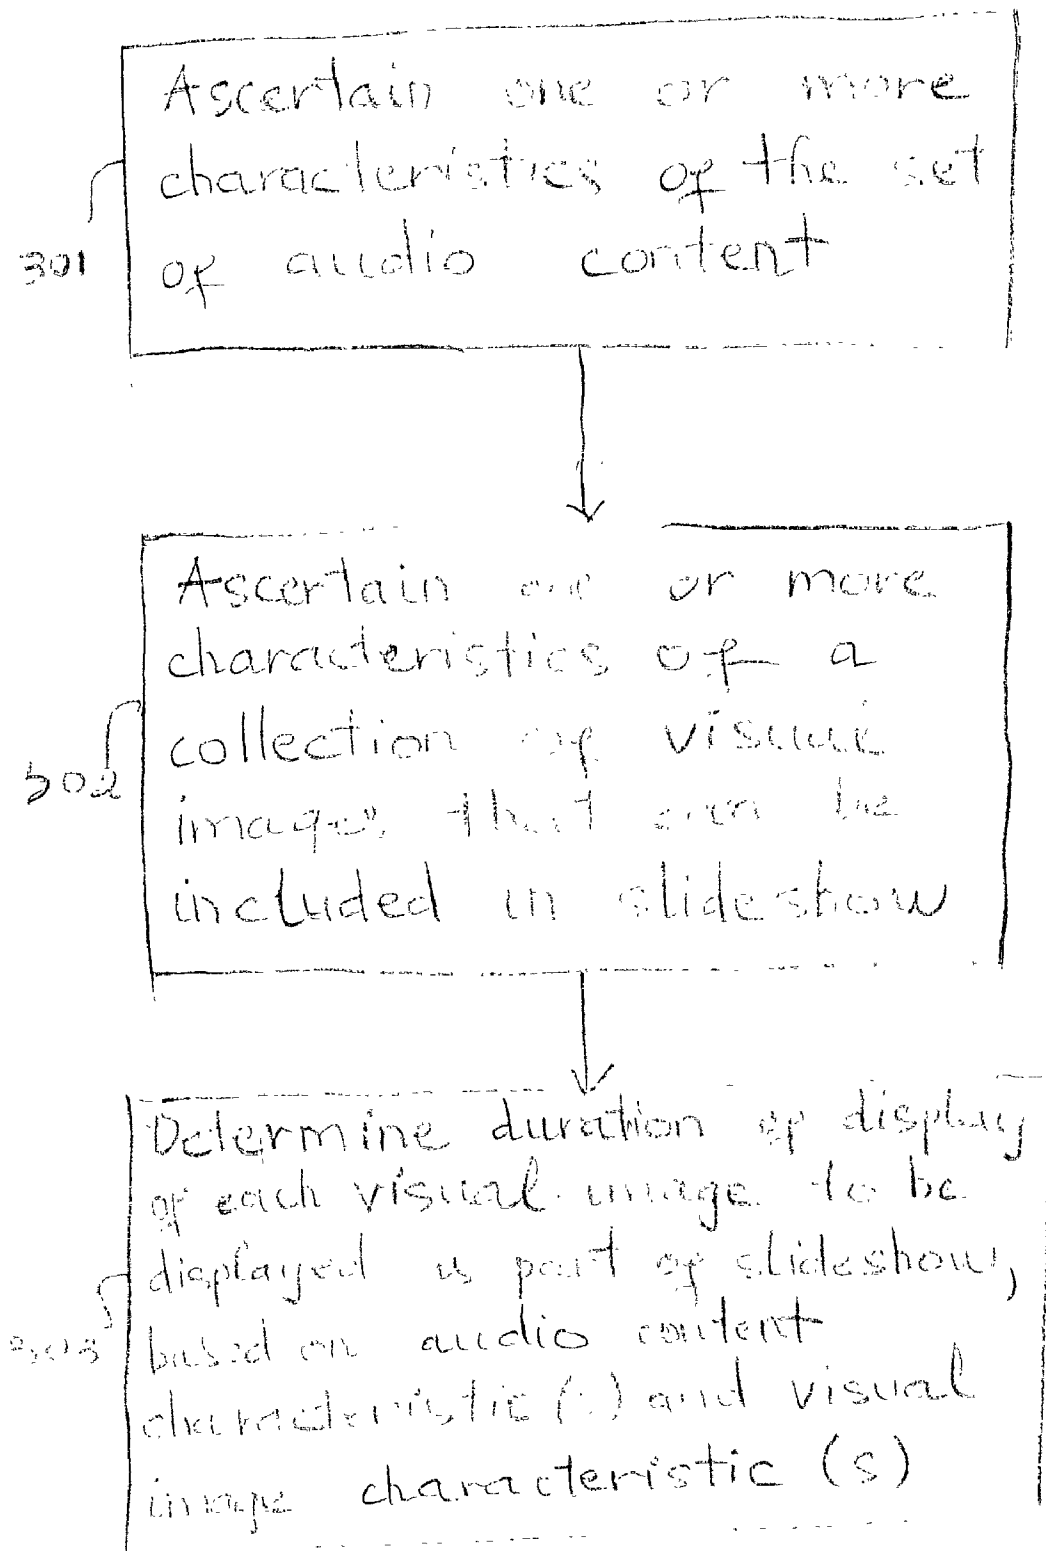 Ascertain one or more
characteristics of the set
301
of audio content
Ascertain one or more
characteristics of a
collection of visual
302
images that can be
included in slideshow
Determine duration of display
of each visual image to be
displayed as part of slideshow,
303
based on audio content
characteristic(s) and visual
image characteristic (s)